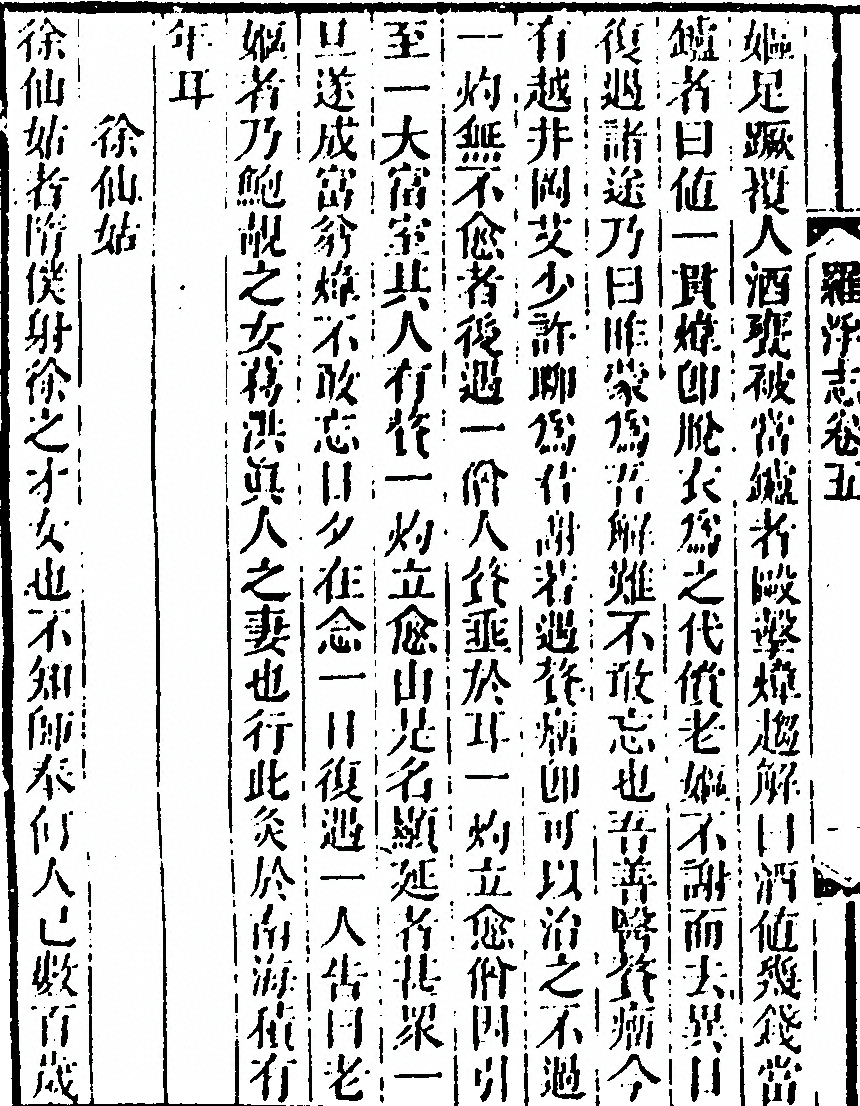 羅浮志卷五
嫗足蹶覆人酒甕被當鑪者毆擊煒趨解曰酒値幾錢當
鑪者曰値一貫煒卽脫衣爲之代償老嫗不謝而去異日
復遇諸途乃曰昨蒙爲吾解難不敢忘也吾善醫贅疣今
有越井岡艾少許聊爲君謝若遇贅疣卽可以治之不過
一灼無不愈者後遇一僧人贅垂於耳一灼立愈僧因引
至一大富室其人有贅一灼立愈由是名顯延者甚眾一
旦遂成富翁煒不敢忘日夕在念一日復遇一人告曰老
嫗者乃鮑靚之女葛洪眞人之妻也行此灸於南海積有
年耳
徐仙姑
徐仙姑者隋僕射徐之才女也不知師奉何人已數百歲